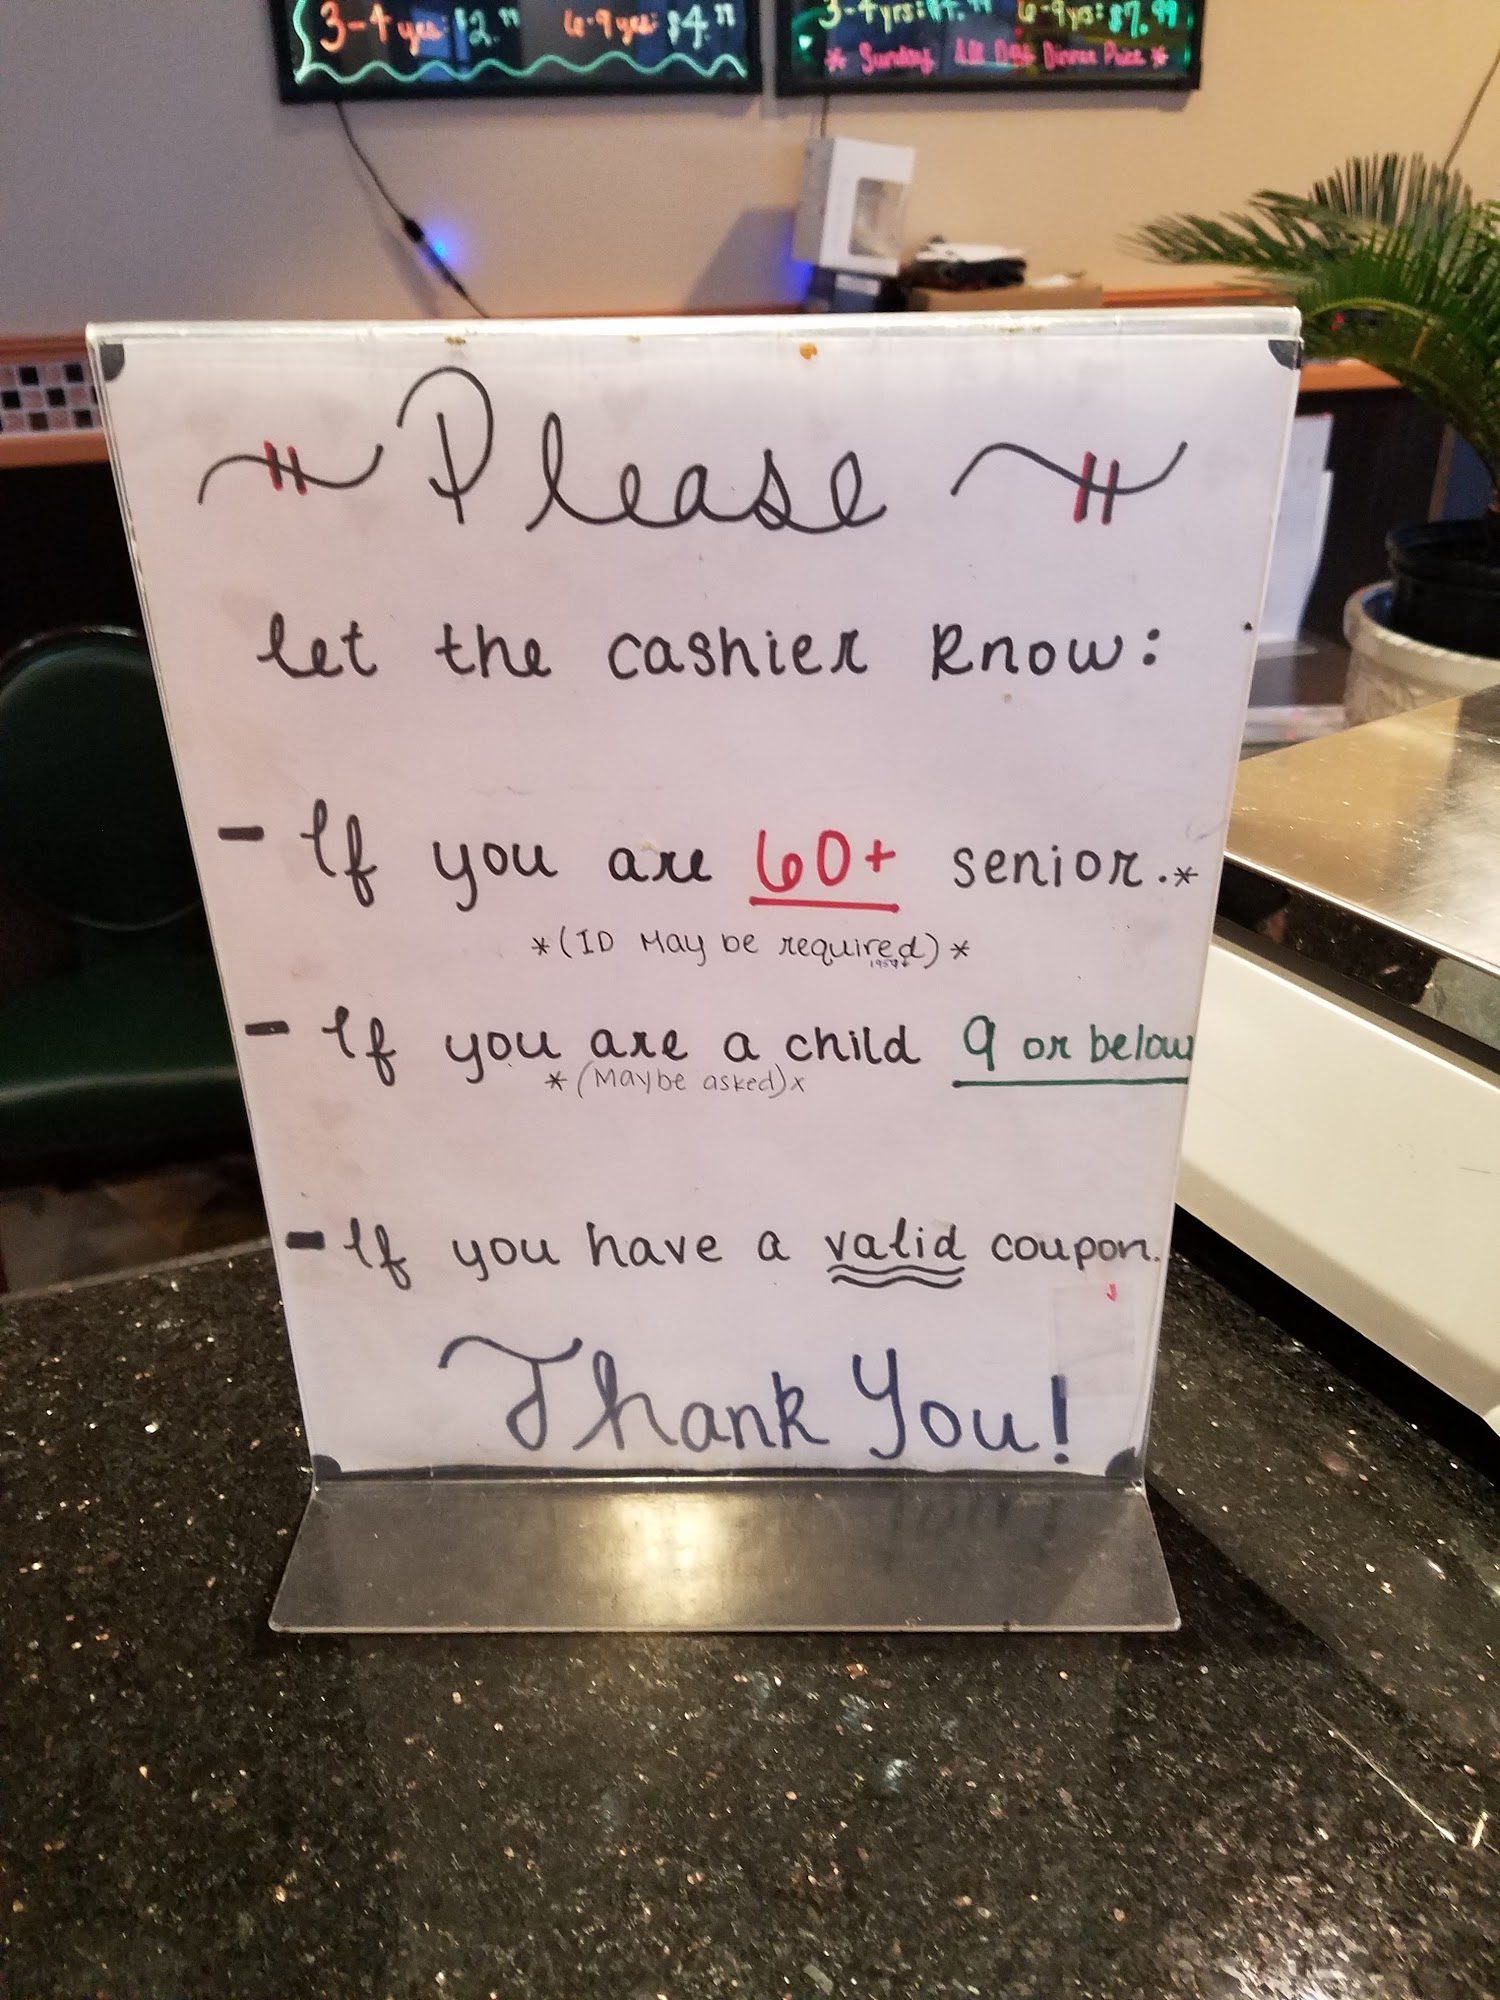 3-4 yrs: $2.99 6-9 yrs: $4.99
3-4 yrs: $4.99 6-9 yrs: $7.99
* Sunday All Day Dinner Price *
Please
let the cashier know:
- If you are 60+ senior.*
*(ID May be required)*
- If you are a child 9 or below
*(Maybe asked)x
- If you have a valid coupon.
Thank You!